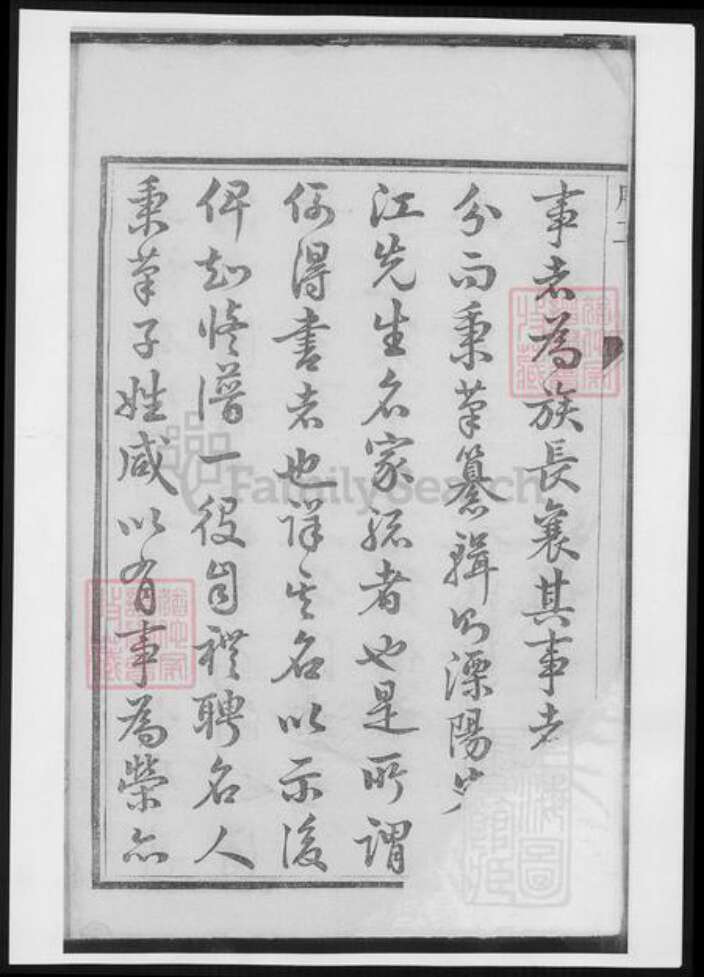 事者為族長襄其事者
分而秉筆纂輯則溧陽
江先生名家孫者也是所謂
得書者也詳其名以示後
俾知修譜一役向禮聘名人
秉筆子姓咸以有事為榮
FamilySearch